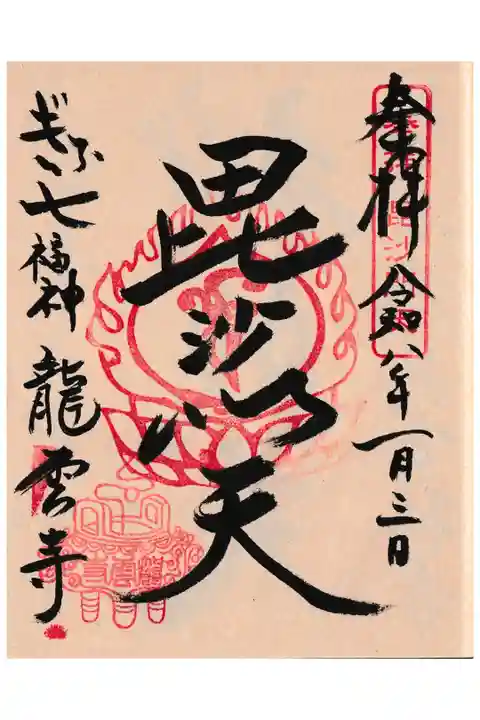 奉拝 令和八年一月三日
毘沙門天
ぎふ七福神 龍雲寺